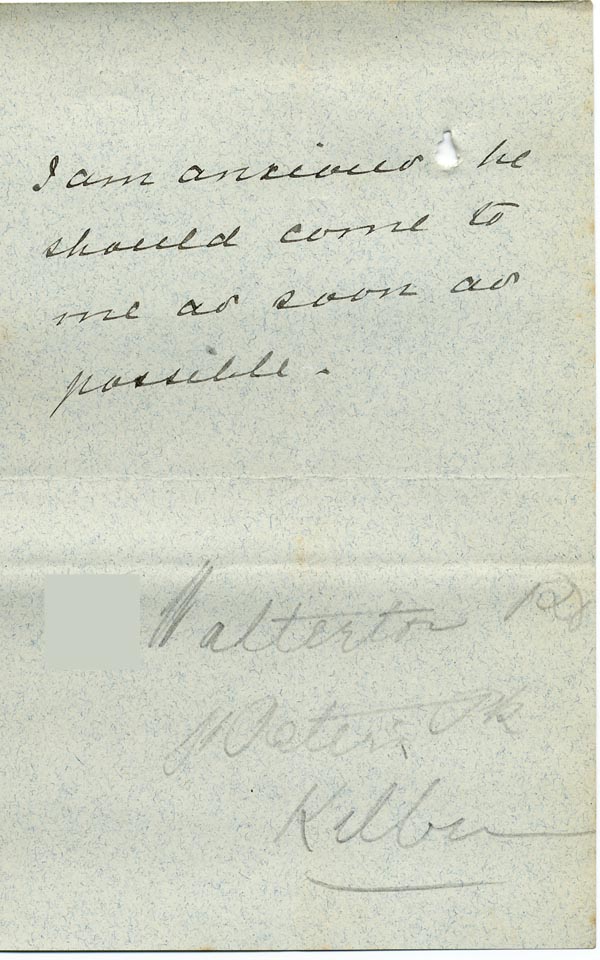 I am anxious he
should come to
me as soon as
possible.
Walterton Rd
St Peter's Pk
Kilburn